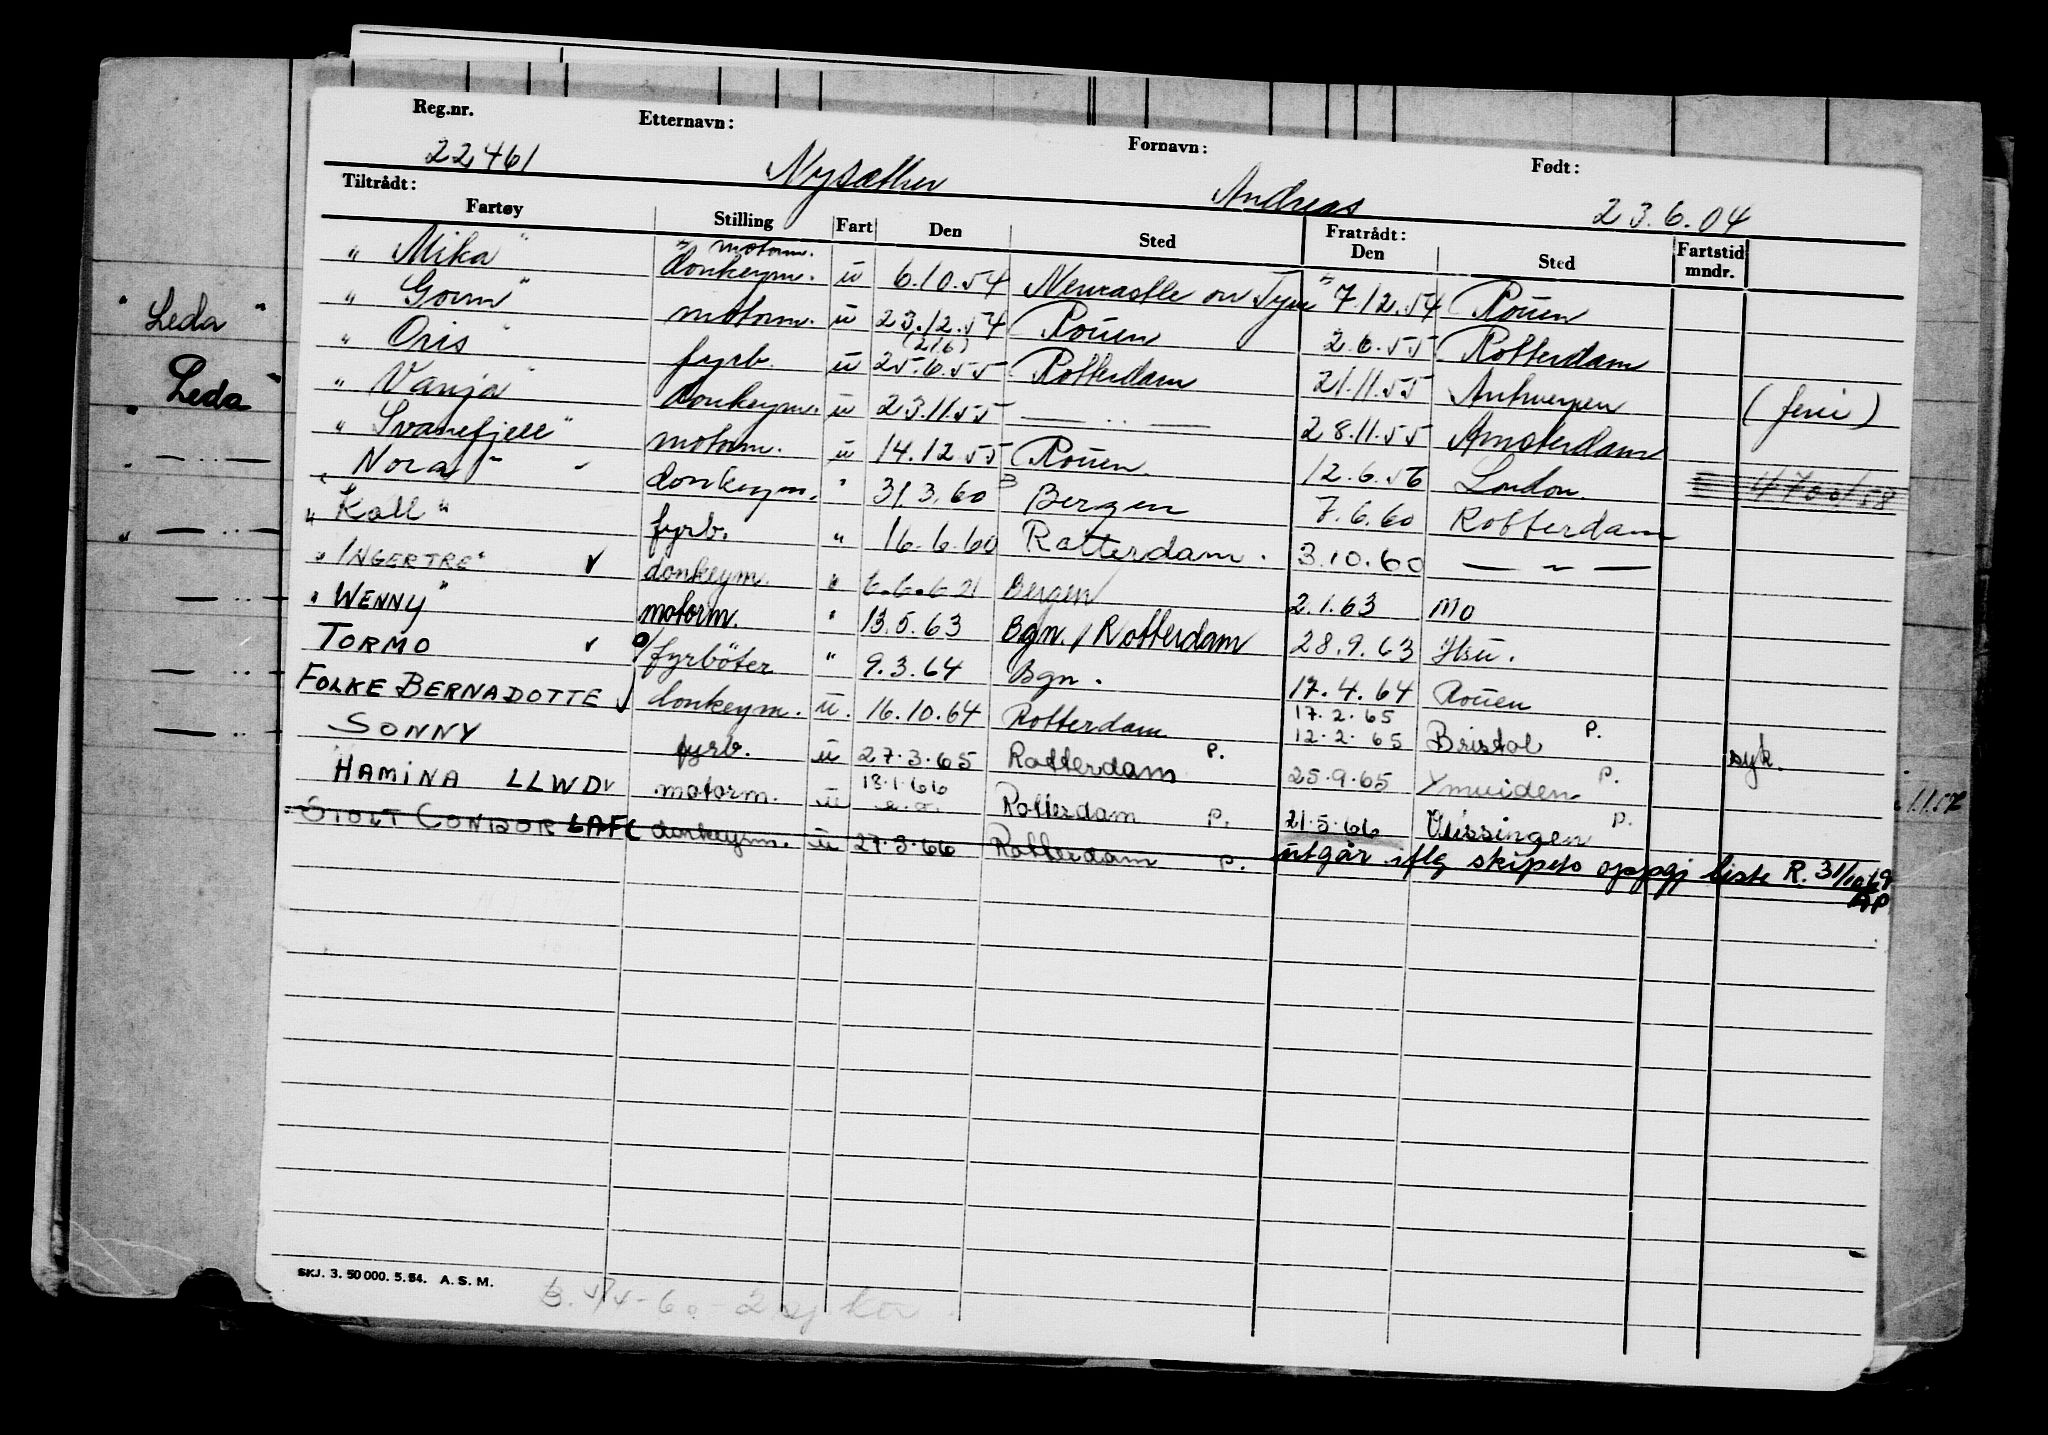 Reg.nr. Etternavn: Fornavn: Født:
22461 Nysæther Andreas 23.6.04
Tiltrådt: Fratrådt:
Fartøy Stilling Fart Den Sted Den Sted Fartstid mndr.
"Mika" motorm. donkeym. u 6.10.54 Newcastle on Tyne 7.12.54 Rouen
"Gorm" motorm. u 23.12.54 Rouen 2.6.55 Rotterdam
"Oris" fyrb. u (21/6) 25.6.55 Rotterdam 21.11.55 Antwerpen (feri)
"Vanja" donkeym. u 23.11.55 — " — 28.11.55 Amsterdam
"Svanefjell" motorm. u 14.12.55 Rouen 12.6.56 London
"Nora" donkeym. " 31.3.60 Bergen 7.6.60 Rotterdam
"Koll" fyrb. " 16.6.60 Rotterdam. 3.10.60 — " —
"INGERTRE" ✓ donkeym. " Bergen 2.1.63 Mo
"WENNY" motorm. " 13.5.63 Bgn./Rotterdam 28.9.63 Hsu.
TORMO ✓ fyrböter " 9.3.64 Bgn. 17.4.64 Rouen
FOLKE BERNADOTTE ✓ donkeym. u. 16.10.64 Rotterdam 17.2.65 12.2.65 Bristol P. syk.
SONNY fyrb. u 27.3.65 Rotterdam P. 25.9.65 Ymuiden P.
HAMINA LLWD ✓ motorm. u 13.1.66 Rotterdam P. 21.5.66 Vlissingen P.
STOLT CONDOR LAFC donkeym. u 27.3.66 Rotterdam P. utgår iflg skipets oppgj liste R. 31/10/69
AP
"Leda"
"Leda"
SKJ. 3. 50 000. 5. 54. A. S. M.